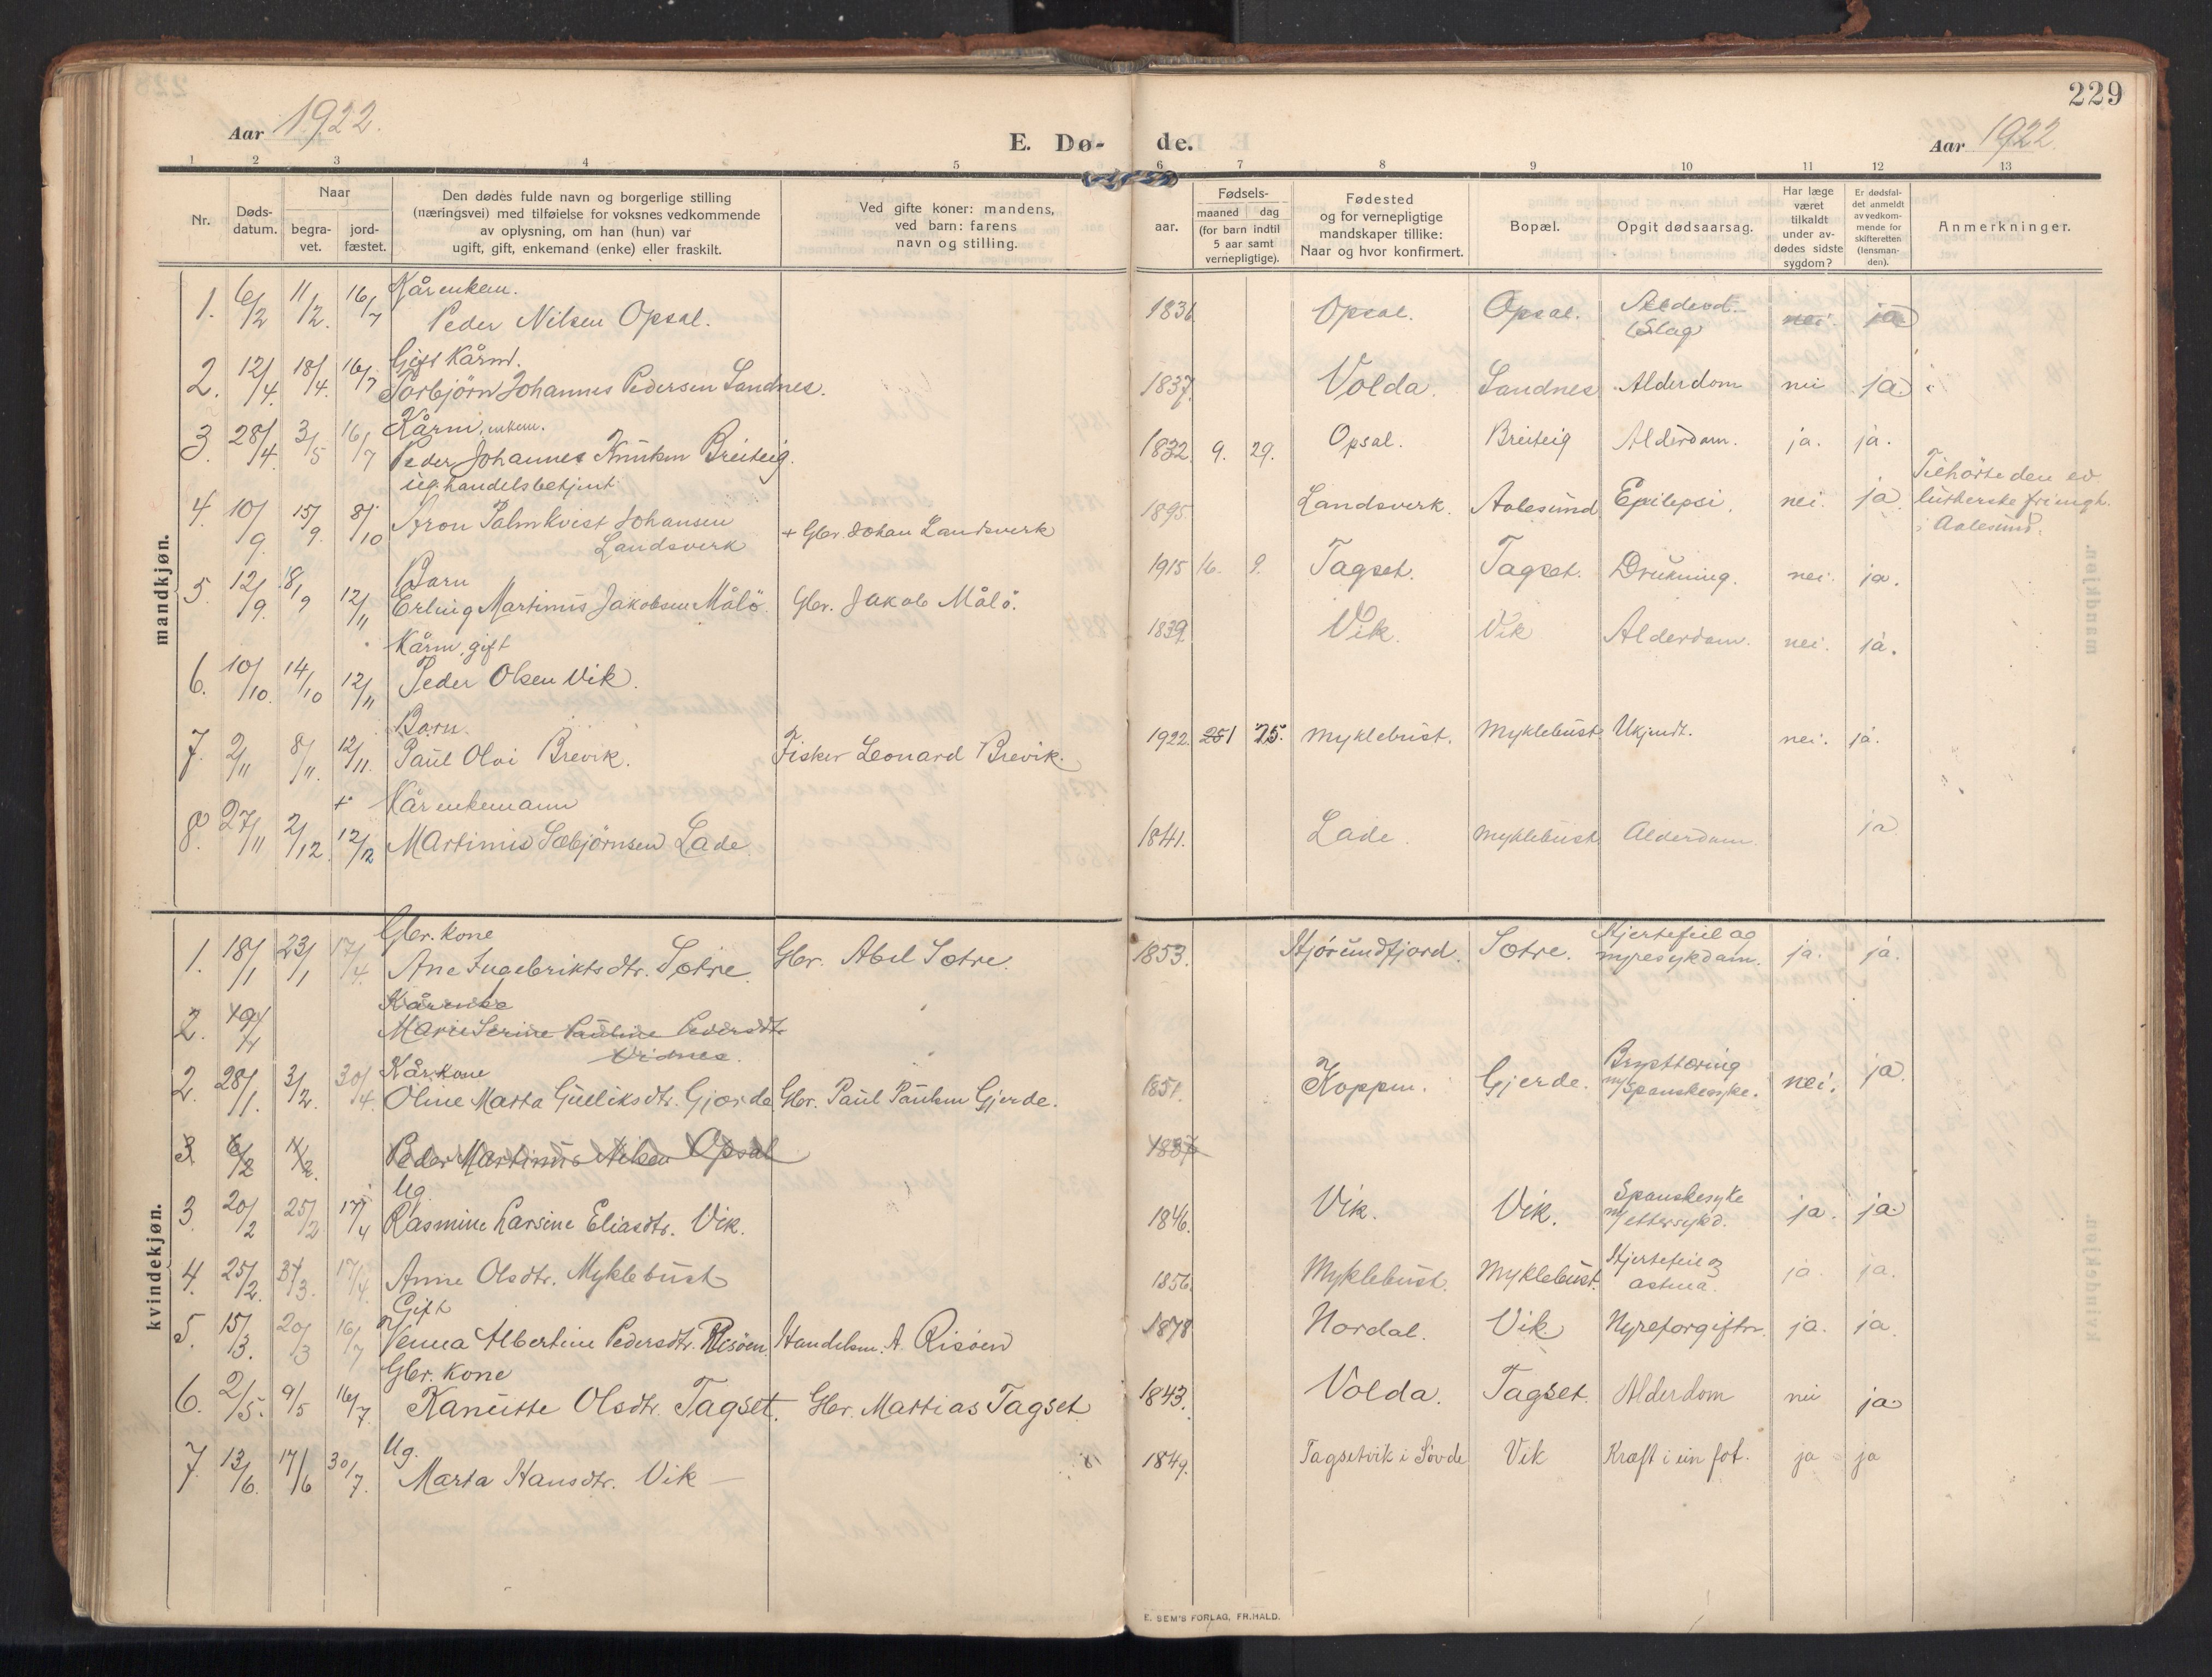 229
Aar 1922.
E. Dø-
de.
Aar 1922.
1 2 3 4 5 6 7 8 9 10 11 12 13
Nr.
Døds-
datum.
Naar
begra-
vet.
jord-
fæstet.
Den dødes fulde navn og borgerlige stilling
(næringsvei) med tilføielse for voksnes vedkommende
av oplysning, om han (hun) var
ugift, gift, enkemand (enke) eller fraskilt.
Ved gifte koner: mandens,
ved barn: farens
navn og stilling.
aar.
Fødsels-
maaned dag
(for barn indtil
5 aar samt
vernepligtige).
Fødested
og for vernepligtige
mandskaper tillike:
Naar og hvor konfirmert.
Bopæl.
Opgit dødsaarsag.
Har læge
været
tilkaldt
under av-
dødes sidste
sygdom?
Er dødsfal-
det anmeldt
av vedkom-
mende for
skifteretten
(lensman-
den).
Anmerkninger.
mandkjøn.
Kårenkem.
1. 6/2 11/2. 16/7 Peder Nilsen Opsal. 1836 Opsal. Opsal. Alderd.
Slag nei. ja
Gift Kårm.
2. 12/4. 18/4. 16/7 Torbjörn Johannes Pedersen Sandnes. 1837. Volda. Sandnes Alderdom nei ja.
Kårm, enkem.
3. 28/4. 3/5 16/7 Peder Johannes Knutsen Breiteig. 1832. 9. 29. Opsal. Breiteig Alderdom. ja. ja.
ug. handelsbetjent
4. 10/9. 15/9. 8/10 Aron Palmkvist Johansen
Landsverk + Gbr. Johan Landsverk 1895. Landsverk. Aalesund Epilepsi. nei. ja Tilhörte den ev.
lutherske frimgh.
i Aalesund.
Barn
5. 12/9. 18/9 12/11 Erling Martinus Jakobsen Målö. Gbr. Jakob Målö. 1915 16. 9. Tagset. Tagset. Drukning. nei. ja.
Kårm, gift
6. 10/10. 14/10 12/11 Peder Olsen Vik. 1839. Vik. Vik Alderdom. nei. ja.
Barn.
7. 2/11 8/11. 12/11. Paul Olvi Brevik. Fisker Leonard Brevik. 1922. 251 25. Myklebust. Myklebust Ukjendt. nei. ja.
+ Kårenkemann
8. 27/11 2/12. 12/12 Martinus Sæbjørnsen Lade 1841. Lade. Myklebust Alderdom. ja
kvindekjøn.
Gbr. kone
1. 18/1 23/1 17/4. Ane Ingebriktsdtr. Sætre. Gbr. Abel Sætre. 1853. Hjörundfjord. Sætre. Hjertefeil og
nyresykdom. ja. ja.
Kårenke
2. 19/1 Marie Serine Pauline Pedersdtr
Vidnes.
Kårkone
2. 28/1. 3/2. 30/4. Oline Marta Gulliksdtr. Gjærde Gbr. Paul Paulsen Gjerde. 1851. Koppen. Gjerde. Brysttæring
m/Spanskesyke. nei. ja
3 6/2 11/2. Peder Martinus Nilsen Opsal 1837
Ug.
3. 20/2 25/2 17/4 Rasmine Larsine Eliasdtr. Vik. 1846. Vik. Vik. Spanskesyke
m/ettersykd. ja. ja.
4. 25/2. 3/3. 17/4. Anne Olsdtr. Myklebust 1856. Myklebust. Myklebust. Hjertefeil og
astma. ja. ja.
Gift
5. 15/3. 20/3 16/7 Venna Albertine Pedersdtr. Risöen. Handelsm. A. Risöen 1878 Nordal. Vik. Nyreforgiftn. ja. ja.
Gbr. kone
6. 2/5. 9/5 16/7. Kanutte Olsdtr. Tagset. Gbr. Mattias Tagset. 1843. Volda. Tagset. Alderdom nei ja.
Ug.
7. 13/6. 17/6 30/7. Marta Hansdtr. Vik — 1849. Tagsetvik i Søvde Vik Kræft i ein fot. ja ja
E. SEM'S FORLAG, FR.HALD.